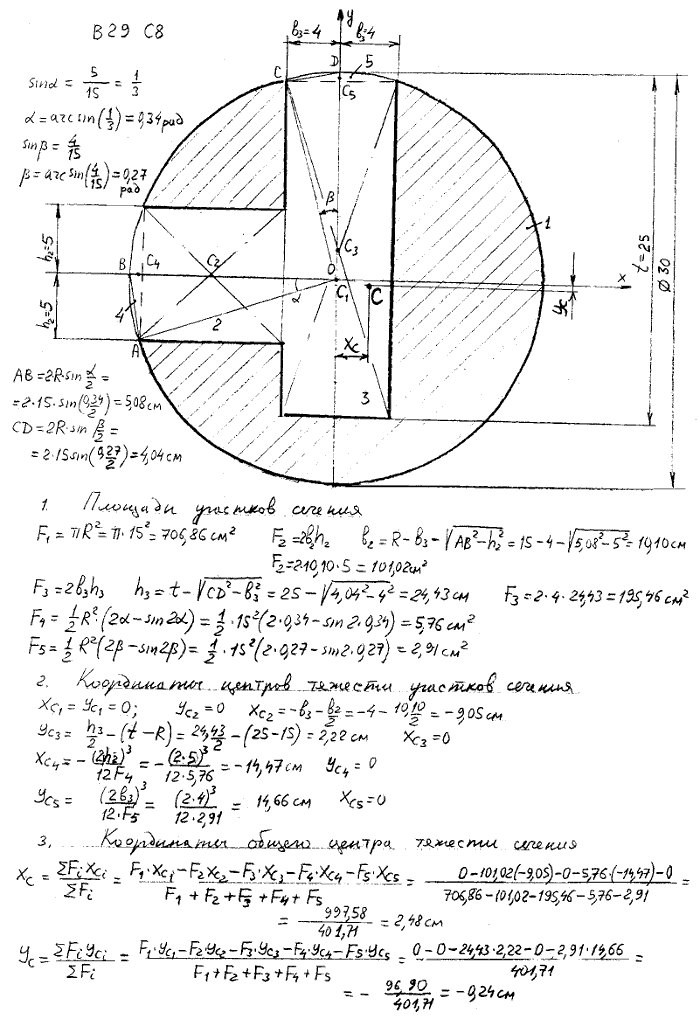 В29 С8
sinα = 5/15 = 1/3
α = arcsin(1/3) = 0,34 рад
sinβ = 4/15
β = arcsin(4/15) = 0,27 рад
в3=4
y
в3=4
D
5
C
C5
β
1
t=25
Ø30
h2=5
B
C4
C2
C3
O
C1
C
x
yc
h2=5
4
α
2
A
xc
3
AB = 2R·sin α/2 =
= 2·15·sin(0,34/2) = 5,08 см
CD = 2R·sin β/2 =
= 2·15 sin(0,27/2) = 4,04 см
1. Площади участков сечения
F1 = πR² = π·15² = 706,86 см² F2 = 2в2h2 в2 = R − в3 − √(AB² − h2²) = 15 − 4 − √(5,08² − 5²) = 10,10 см
F2 = 2·10,10·5 = 101,02 см²
F3 = 2в3h3 h3 = t − √(CD² − в3²) = 25 − √(4,04² − 4²) = 24,43 см F3 = 2·4·24,43 = 195,46 см²
F4 = 1/2 R²·(2α − sin2α) = 1/2·15²(2·0,34 − sin2·0,34) = 5,76 см²
F5 = 1/2 R²(2β − sin2β) = 1/2·15²(2·0,27 − sin2·0,27) = 2,91 см²
2. Координаты центров тяжести участков сечения
xc1 = yc1 = 0; yc2 = 0 xc2 = −в3 − в2/2 = −4 − 10,10/2 = −9,05 см
yc3 = h3/2 − (t − R) = 24,43/2 − (25 − 15) = 2,22 см xc3 = 0
xc4 = −(2h2)³/12F4 = −(2·5)³/12·5,76 = −14,47 см yc4 = 0
yc5 = (2в3)³/12·F5 = (2·4)³/12·2,91 = 14,66 см xc5 = 0
3. Координаты общего центра тяжести сечения
xc = ΣFi xci/ΣFi = F1·xc1 − F2xc2 − F3·xc3 − F4·xc4 − F5·xc5/F1 + F2 + F3 + F4 + F5 = 0 − 101,02(−9,05) − 0 − 5,76·(−14,47) − 0/706,86 − 101,02 − 195,46 − 5,76 − 2,91 =
= 997,58/401,71 = 2,48 см
yc = ΣFi yci/ΣFi = F1·yc1 − F2yc2 − F3·yc3 − F4·yc4 − F5·yc5/F1 + F2 + F3 + F4 + F5 = 0 − 0 − 24,43·2,22 − 0 − 2,91·14,66/401,71 =
= − 96,90/401,71 = −0,24 см